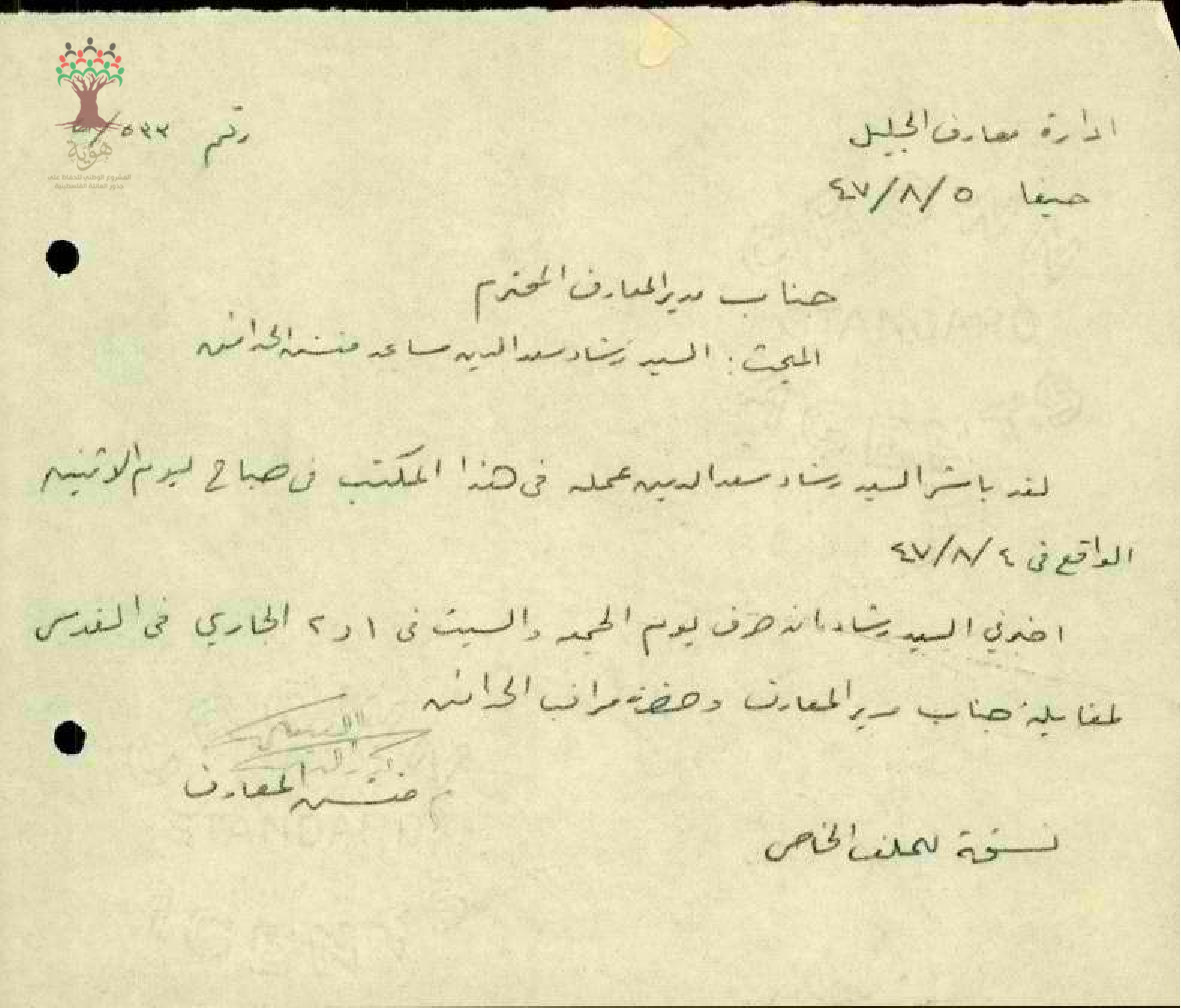 ادارة معارف الجليل
رقم ٥٣٣/
حيفا ٤٧/٨/٥
هوية
المشروع الوطني للحفاظ على
جذور العائلة الفلسطينية
جناب مدير المعارف المحترم
المبحث: السيد رشاد سعد الدين مساعد مفتش الحدائق
لقد باشر السيد رشاد سعد الدين عمله في هذا المكتب في صباح يوم الاثنين
الواقع في ٤٧/٨/٤
اخبرني السيد رشاد بانه صرف يوم الجمعه والسبت في ١ و ٢ الجاري في القدس
لمقابلة جناب مدير المعارف وحضرة مراقب الحدائق
مفتش المعارف
نسخة للملف الخاص